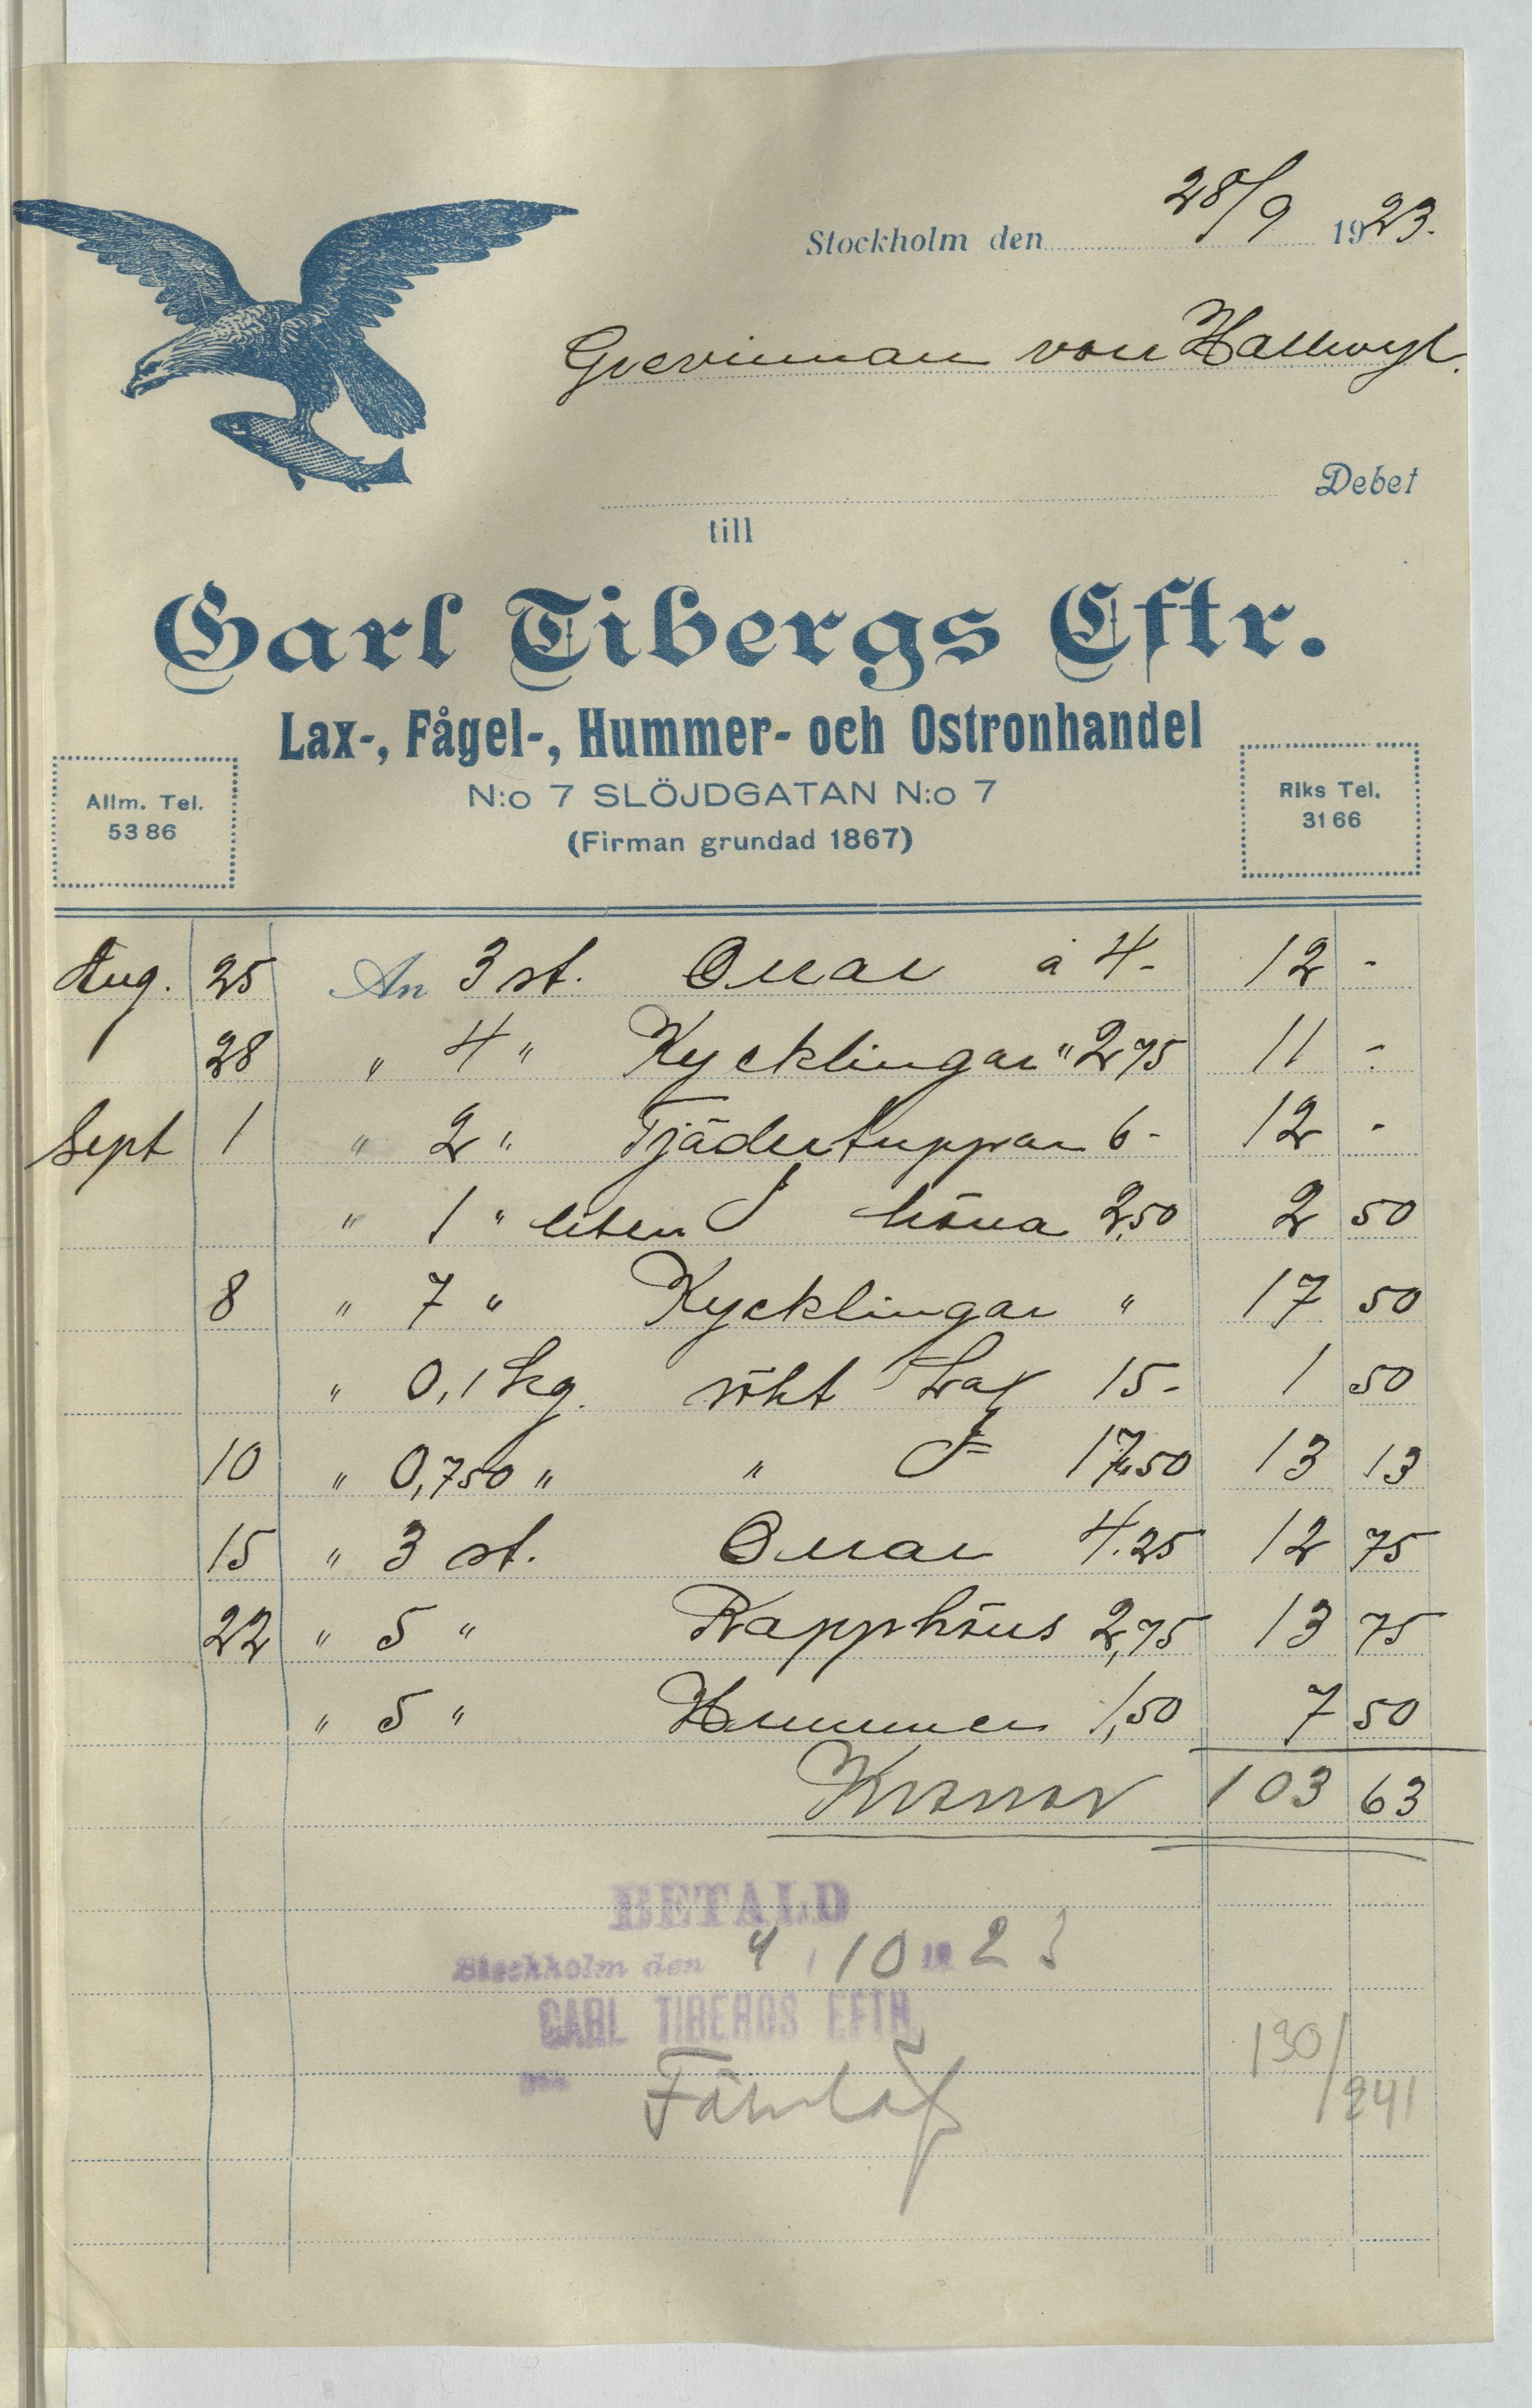 Stockholm den 28/9 1923.
Grevinnan von Hallwyl.
Debet
till
Carl Tibergs Eftr.
Lax-, Fågel-, Hummer- och Ostronhandel
N:o 7 SLÖJDGATAN N:o 7
(Firman grundad 1867)
Allm. Tel.
53 86
Riks Tel.
31 66
Aug. 25 An 3 st. Orrar à 4- 12 -
28 " 4 " Kycklingar " 2,75 11 -
Sept 1 " 2 " Tjädertuppar 6- 12 -
" 1 " liten höna 2,50 2 50
8 " 7 " Kycklingar " 17 50
" 0,1 kg. rökt Lax 15- 1 50
10 " 0,750 " " 17,50 13 13
15 " 3 st. Orrar 4.25 12 75
22 " 5 " Rapphöns 2,75 13 75
" 5 " Hummer 1,50 7 50
Kronor 103 63
BETALD
Stockholm den 4/10 1923
CARL TIBERGS EFTR.
130/241